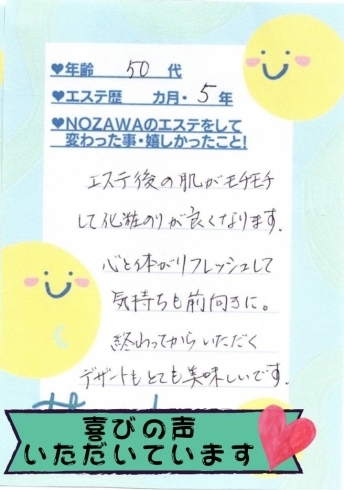 ♥年齢 50 代
♥エステ歴 カ月・5年
♥NOZAWAのエステをして
変わった事・嬉しかったこと!
エステ後の肌がモチモチ
して化粧のりが良くなります.
心と体がリフレッシュして
気持ちも前向きに。
終わってからいただく
デザートもとても美味しいです.
喜びの声
いただいています